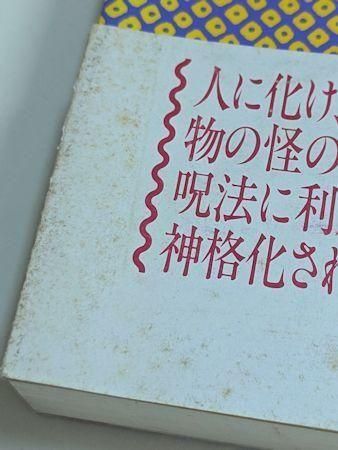 人に化け、
物の怪の
呪法に利
神格化され